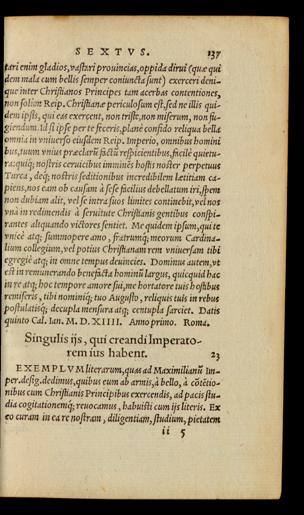 SEXTVS. 137
tari enim gladios, vastari prouincias, oppida dirui (quæ qui
dem mala cum bellis semper coniuncta sunt) exerceri deni-
que inter Christianos Principes tam acerbas contentiones,
non solùm Reip. Christianæ periculosum est, sed ne illis qui-
dem ipsis, qui eas exercent, non triste, non miserum, non fu-
giendum. Id si ipse per te feceris, planè confido reliqua bella
omnia in vniuerso eiusdem Reip. Imperio, omnibus homini
bus, tuum vnius præclarũ factũ respicientibus, facilè quietu-
ra: quiq; nostris ceruicibus imminẽs hostis noster perpetuus
Turca, deq; nostris seditionibus incredibilem lætitiam ca-
piens, nos eam ob causam à sese facilius debellatum iri, spem
non dubiam alit, vel se intra suos limites continebit, vel nos
vnà in redimendis à seruitute Christianis gentibus conspi-
rantes aliquando victores sentiet. Me quidem ipsum, qui te
vnicè atq; summopere amo, fratrumq; meorum Cardina-
lium collegium, vel potius Christianam rem vniuersam tibi
egregiè atq; in omne tempus deuincies. Dominus autem, vt
est in remunerando benefacta hominũ largus, quicquid hac
in re atq; hoc tempore amore sui, me hortatore tuis hostibus
remiseris, tibi nominiq; tuo Augusto, reliquis tuis in rebus
postulatisq; decupla mensura atq; centupla sarciet. Datis
quinto Cal. Ian. M. D. XIIII. Anno primo. Roma.
Singulis ijs, qui creandi Imperato-
rem ius habent. 23
EXEMPLVM literarum, quas ad Maximilianũ Im-
per. desig. dedimus, quibus eum ab armis, à bello, à cõtẽtio-
nibus cum Christianis Principibus exercendis, ad pacis stu-
dia cogitationemq; reuocamus, habuisti cum ijs literis. Ex
eo curam in ea re nostram, diligentiam, studium, pietatem
ii 5